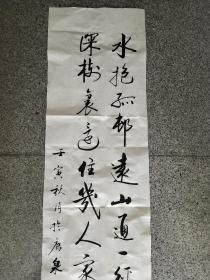 水抱孤村远山通一径
深树裏边住几人家
壬寅秋月於唐泉